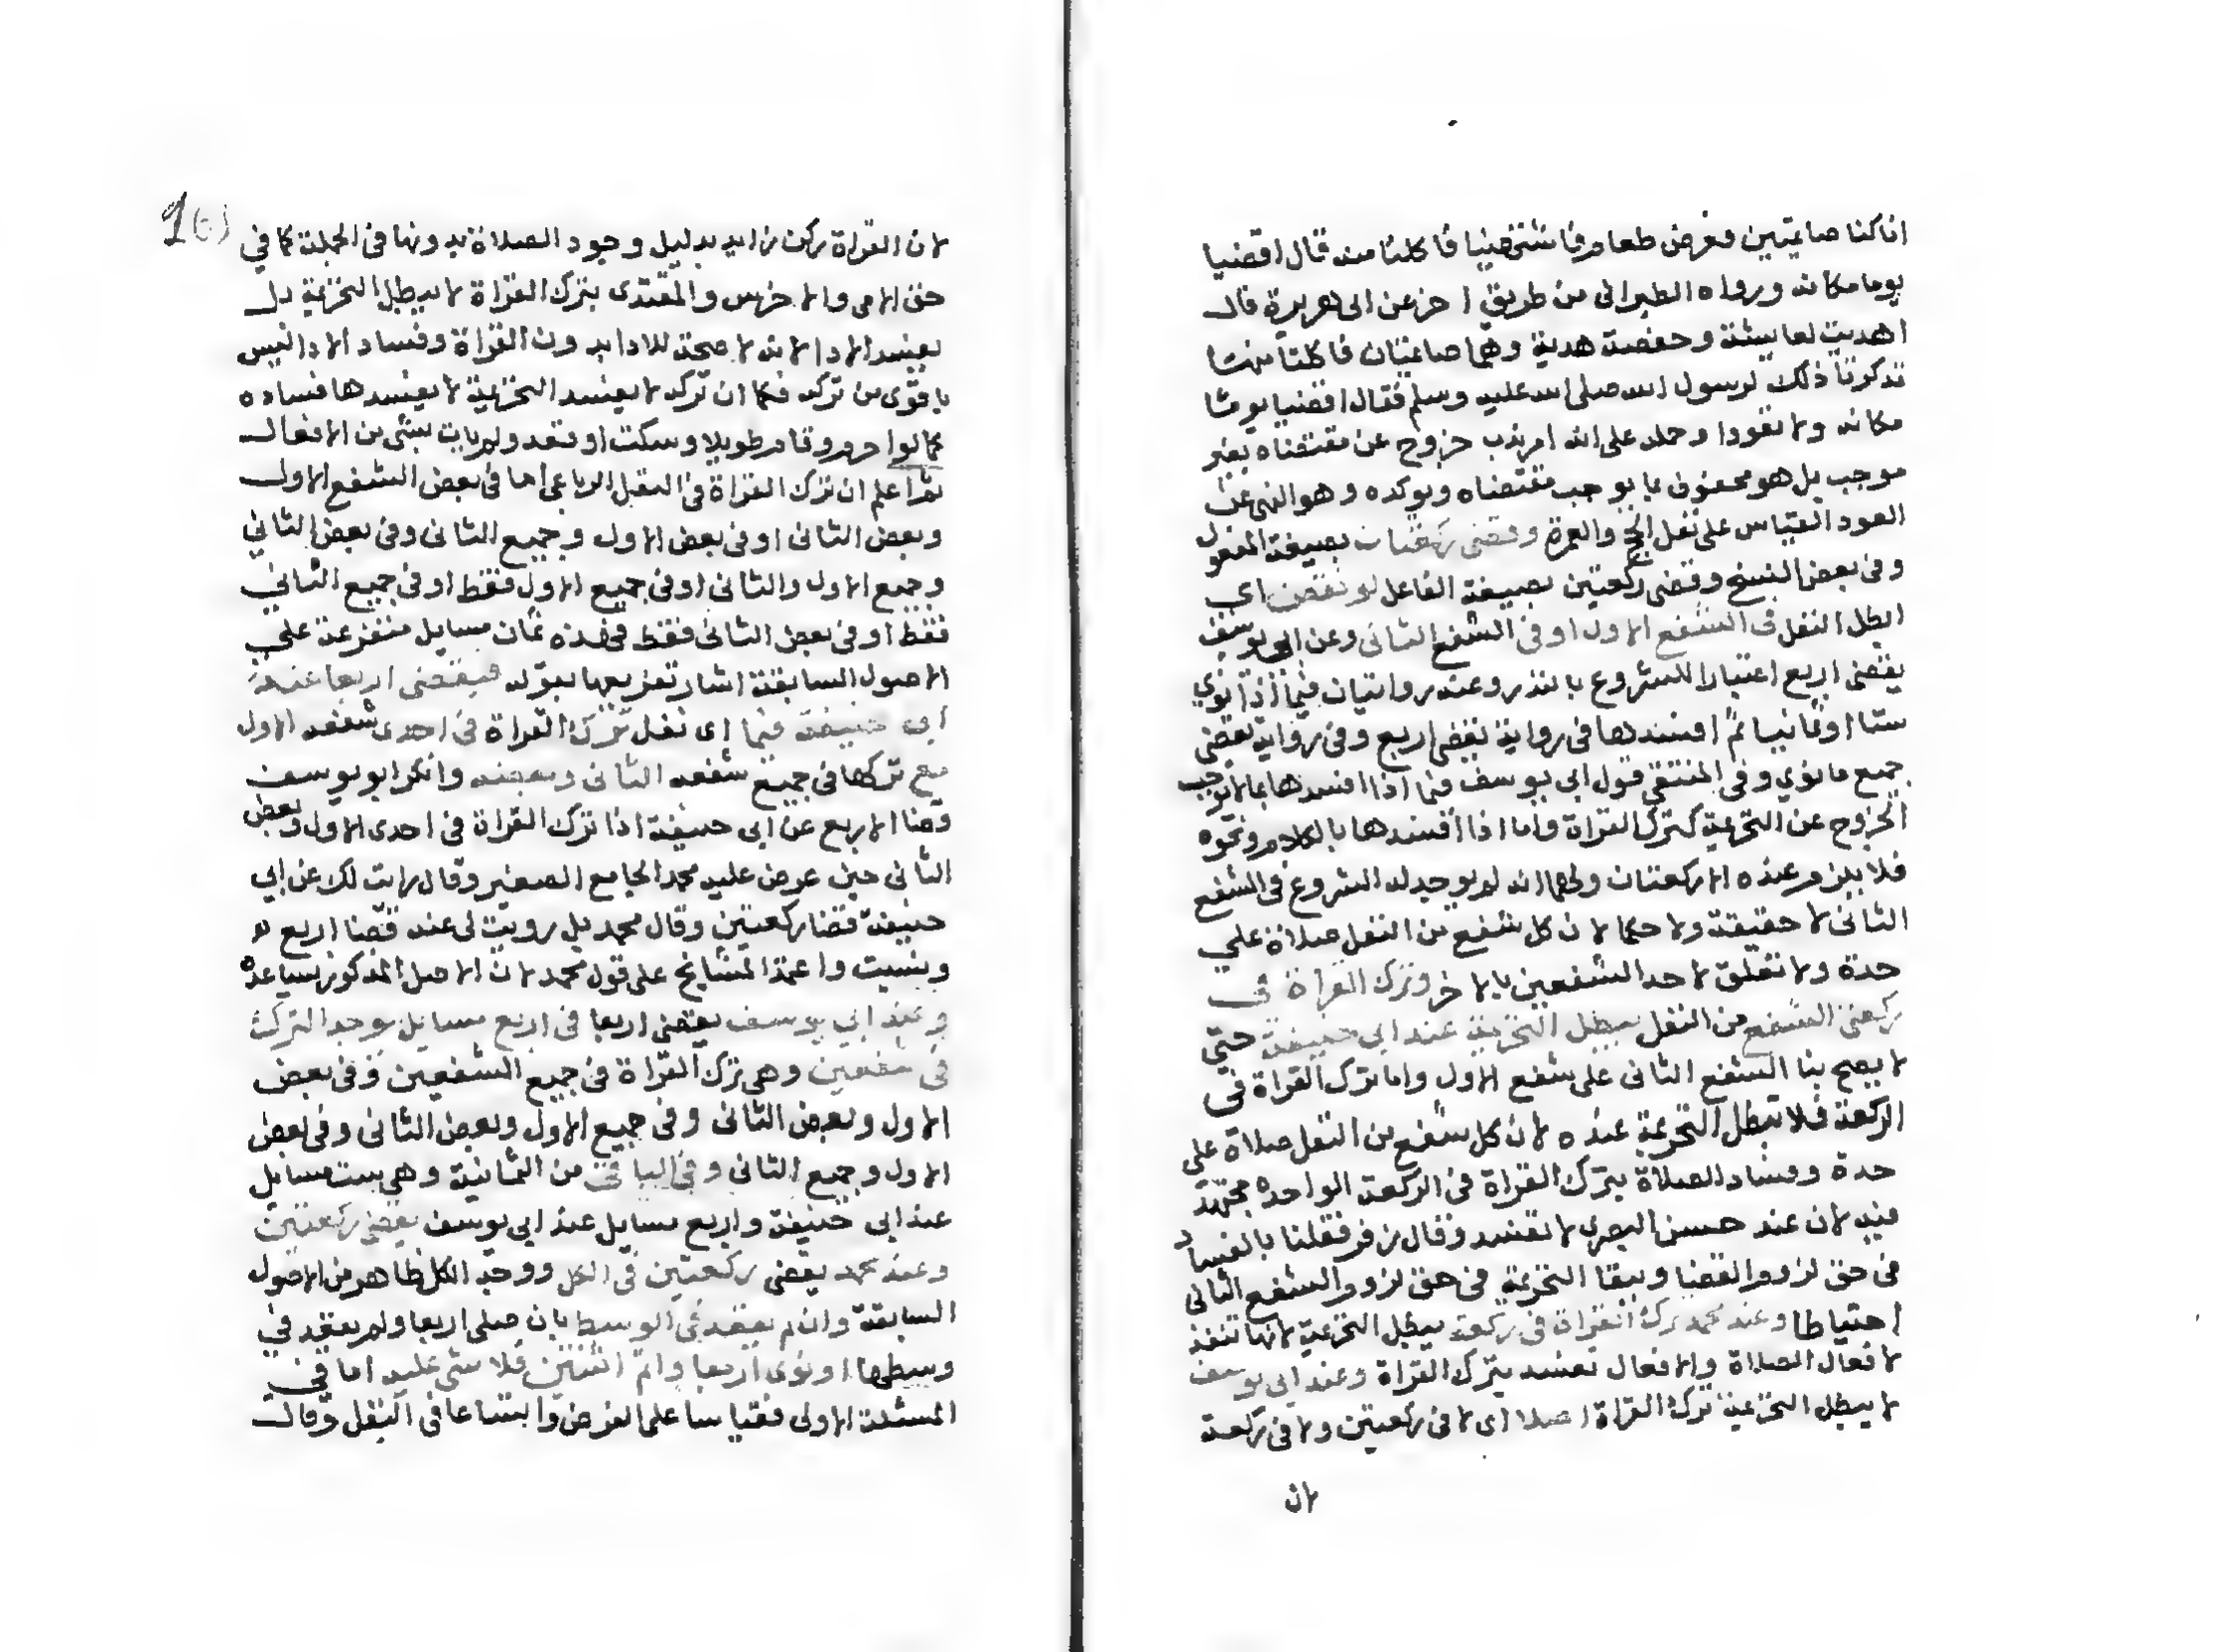 انا كنا صايمتين فعرض طعام فاشتهينا فاكلنا منه قال اقضيا
يوما مكانه ورواه الطبراني من طريق اخر عن ابي هريرة قال
اهديت لعايشة وحفصة هدية وهما صايمتان فاكلتا منها
فذكرتا ذلك لرسول الله صلى الله عليه وسلم فقال اقضيا يوما
مكانه ولا تعودا وحمله على انه امر ندب خروج عن مقتضاه بغير
موجب بل هو محفوف بما يوجب مقتضاه ويوكده وهو النهي عن
العود القياس على نفل الحج والعمرة وقضي ركعتان بصيغة المفعول
وفي بعض النسخ وقضى ركعتين بصيغة الفاعل لو نقض اي
ابطل النفل في الشفع الاول او في الشفع الثاني وعن ابي يوسف
يقضي اربع اعتبارا للشروع بالنذر وعنه روايتان فيما اذا نوي
ستا او ثمانيا ثم افسدها في رواية يقضي اربع وفي رواية يقضي
جميع ما نوي وفي المنتقي قول ابي يوسف فيما اذا افسدها بما لا يوجب
الخروج عن التحريمة كترك القراة واما اذا افسدها بالكلام ونحوه
فلا يلزم عنده الا ركعتان ولهما انه لم يوجد له الشروع في الشفع
الثاني لا حقيقة ولا حكما لان كل شفع من النفل صلاة علي
حدة ولا تعلق لاحد الشفعين بالاخر وترك القراة في
ركعتي الشفع من النفل يبطل التحريمة عند ابي حنيفة حتي
لا يصح بنا الشفع الثاني على شفع الاول واما ترك القراة في
الركعة فلا تبطل التحريمة عنده لان كل شفع من النفل صلاة على
حدة وفساد الصلاة بترك القراة في الركعة الواحده مجتهد
فيه لان عند حسن البصري لا تفسد وقال زفر فقلنا بالفساد
في حق لزوم القضا وببقا التحريمة في حق لزوم الشفع الثاني
احتياطا وعند محمد ترك القراة في ركعة يبطل التحريمة لانها تنعقد
لافعال الصلاة والافعال تفسد بترك القراة وعند ابي يوسف
لا يبطل التحريمة ترك القراة اصلا اي لا في ركعتين ولا في ركعة
لان
لان القراة ركن زايد بدليل وجود الصلاة بدونها في الجملة كما في
حق الامي والاخرس والمقتدى بترك القراة لا يبطل التحريمة بل
يفسد الادا لانه لا صحة للادا بدون القراة وفساد الادا ليس
باقوى من تركه فكما ان تركه لا يفسد التحريمة لا يفسدها فساده
كما لو احرم وقام طويلا وسكت او قعد ولم يات بشي من الافعال
ثم اعلم ان ترك القراة في النفل الرباعي اما في بعض الشفع الاول
وبعض الثاني او في بعض الاول وجميع الثاني وفي بعض الثاني
وجميع الاول والثاني او في جميع الاول فقط او في جميع الثاني
فقط او في بعض الثاني فقط فهذه ثمان مسايل متفرعة علي
الاصول السابقة اشار تفريعها بقوله فيقضي اربعا عند
ابي حنيفة فيما اي نفل ترك القراة في احدى شفعه الاول
مع تركها في جميع شفعه الثاني وبعضه وانكر ابو يوسف
قضا الاربع عن ابي حنيفة اذا ترك القراة في احدى الاول وبعض
الثاني حين عرض عليه محمد الجامع الصغير وقال رايت لك عن ابي
حنيفة قضا ركعتين وقال محمد بل رويت لي عنه قضا اربع
ونسيت واعتمد المشايخ على قول محمد لان الاصل المذكور يساعده
وعند ابي يوسف يقضي اربعا في اربع مسايل يوجد الترك
في شفعين وهي ترك القراة في جميع الشفعين وفي بعض
الاول وبعض الثاني وفي جميع الاول وبعض الثاني وفي بعض
الاول وجميع الثاني وفي الباقي من الثمانية وهي ست مسايل
عند ابي حنيفة واربع مسايل عند ابي يوسف يقضي ركعتين
وعند محمد يقضي ركعتين في الكل ووجه الكل ظاهر من الاصول
السابقة وان لم يقعد في الوسط بان صلى اربعا ولم يقعد في
وسطها او نوى اربعا واتم اثنتين فلا شي عليه اما في
المسئلة الاولى فقياسا على الفرض واتساعا في النفل وقال